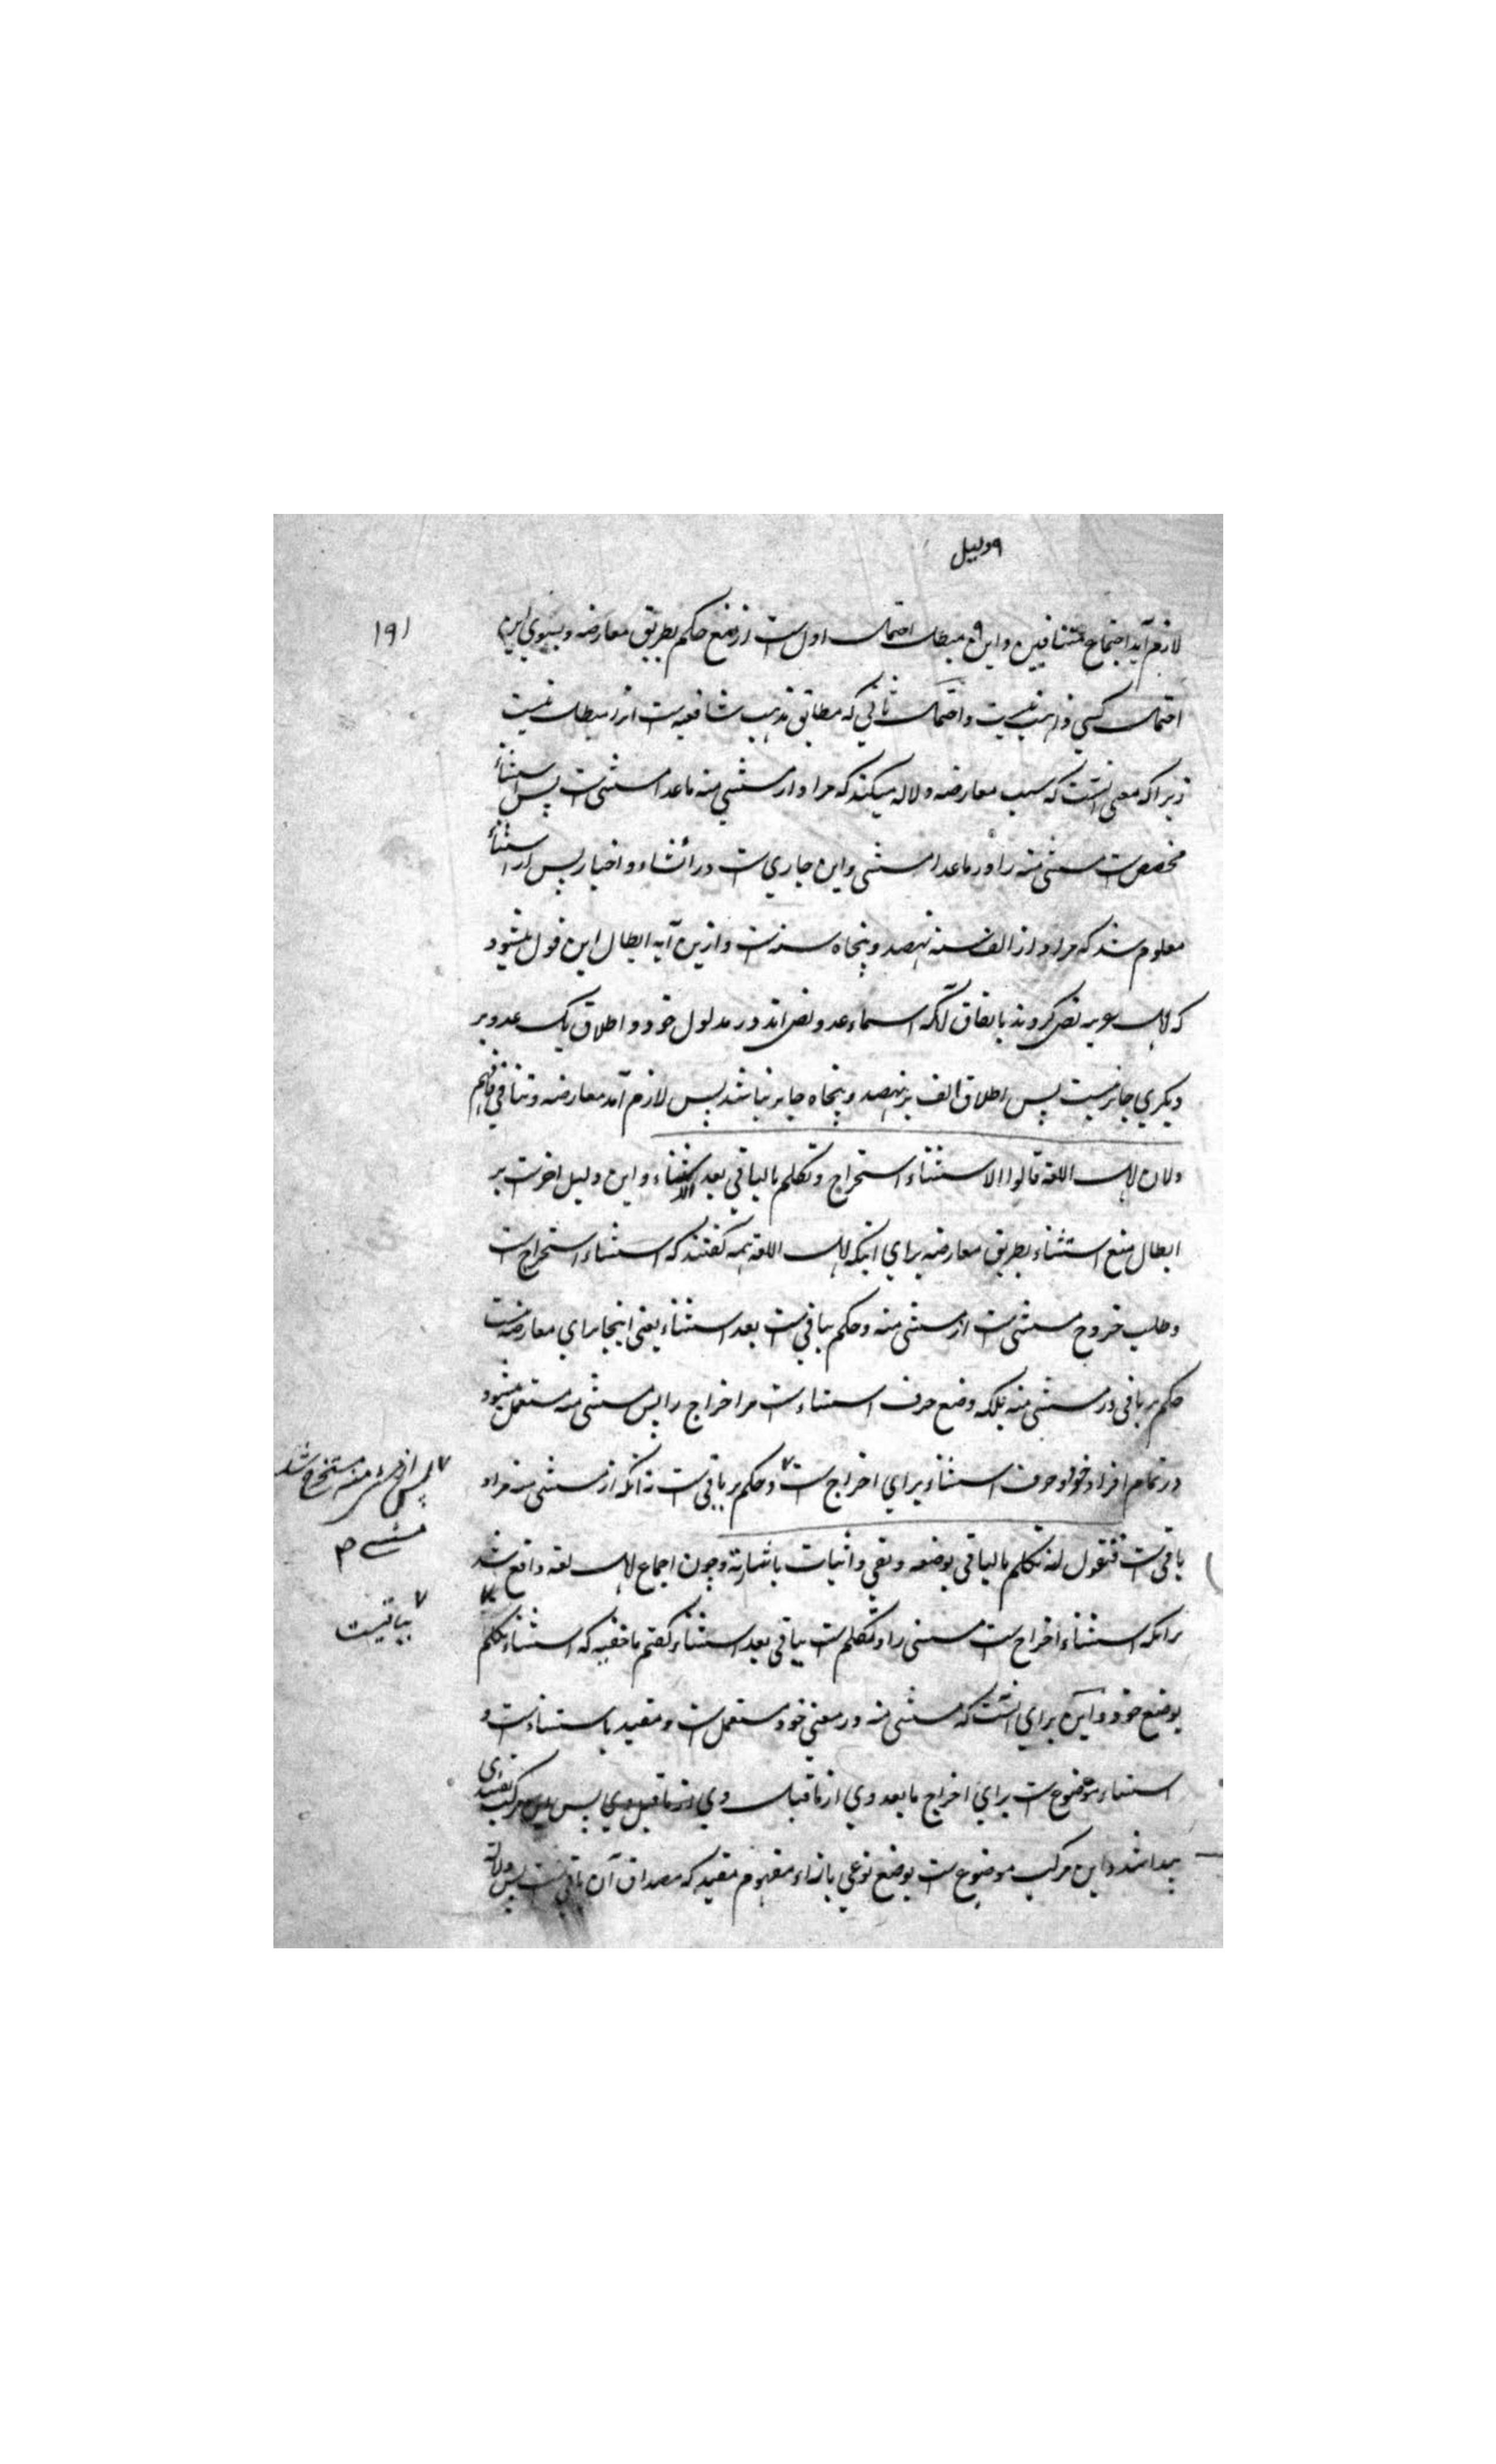 دلیل
۱۹۱
لازم آید اجتماع متنافیین و این مبطل احتمال اول است از منع حکم بطریق معارضه و بسوی این
احتمال کسی ذاهب نیست و احتمال ثانی که مطابق مذهب شافعیه است ازو مبطل نیست
زیرا که معنی آنست که سبب معارضه دلاله میکند که مراد از مستثنی منه ماعدا مستثنی است پس استثناء
مخصص است مستثنی منه را در ماعدا مستثنی و این جاری است در انشاء و اخبار پس از استثناء
معلوم شد که مراد از الف سنه نهصد و پنجاه سنه است و ازین آیه ابطال این قول میشود
که اهل عربیه نص کردند باتفاق آنکه اسماء عدد نص اند در مدلول خود و اطلاق یک عدد بر
دیگری جائز نیست پس اطلاق الف بر نهصد و پنجاه جایز نباشد پس لازم آمد معارضه و تنافی فافهم
ولان اهل اللغة قالوا الاستثناء استخراج وتکلم بالباقی بعد الاستثناء و این دلیل اخر است بر
ابطال منع استثناء بطریق معارضه برای اینکه اهل اللغة همه گفتند که استثناء استخراج است
و طلب خروج مستثنی است از مستثنی منه و حکم بباقی است بعد استثناء یعنی اینجا برای معارضه نیست
حکم بر باقی در مستثنی منه بلکه وضع حرف استثناء است مر اخراج را پس مستثنی منه مستعمل میشود
در تمام افراد خود و حرف استثناء برای اخراج است و حکم بر باقی است نه آنکه از مستثنی منه مراد
پس از مستثنی منه مستخرج شد
مستثنی
باقی است فنقول انه تکلم بالباقی بوضعه ونفی واثبات باشارته و چون اجماع اهل لغه واقع شد
برانکه استثناء اخراج است مستثنی را و تکلم است بباقی بعد استثناء گفتیم ما حنفیه که استثناء تکلم
بباقیست
بوضع خود و این برای آنست که مستثنی منه در معنی خود مستعمل است و مقید باستثناء است و
استثناء موضوع است برای اخراج مابعد وی از ماقبل وی از ماقبل وی پس این مرکب تقییدی
پیدا شد و این مرکب موضوع است بوضع نوعی بازاء مفهوم مقید که مصداق آن باقی است پس دلالة